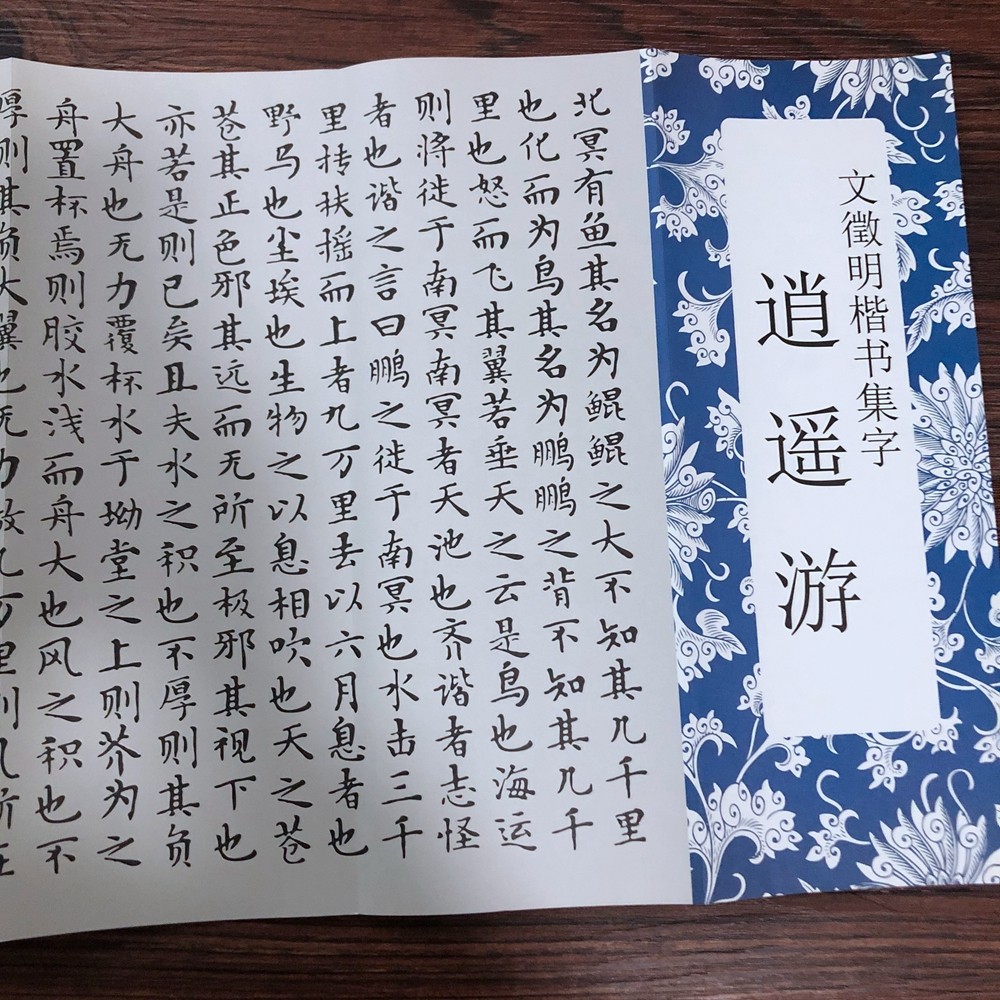 文徵明楷书集字
逍遥游
北冥有鱼其名为鲲鲲之大不知其几千里
也化而为鸟其名为鹏鹏之背不知其几千
里也怒而飞其翼若垂天之云是鸟也海运
则将徙于南冥南冥者天池也齐谐者志怪
者也谐之言曰鹏之徙于南冥也水击三千
里抟扶摇而上者九万里去以六月息者也
野马也尘埃也生物之以息相吹也天之苍
苍其正色邪其远而无所至极邪其视下也
亦若是则已矣且夫水之积也不厚则其负
大舟也无力覆杯水于坳堂之上则芥为之
舟置杯焉则胶水浅而舟大也风之积也不
厚则其负大翼也无力故九万里则风斯在